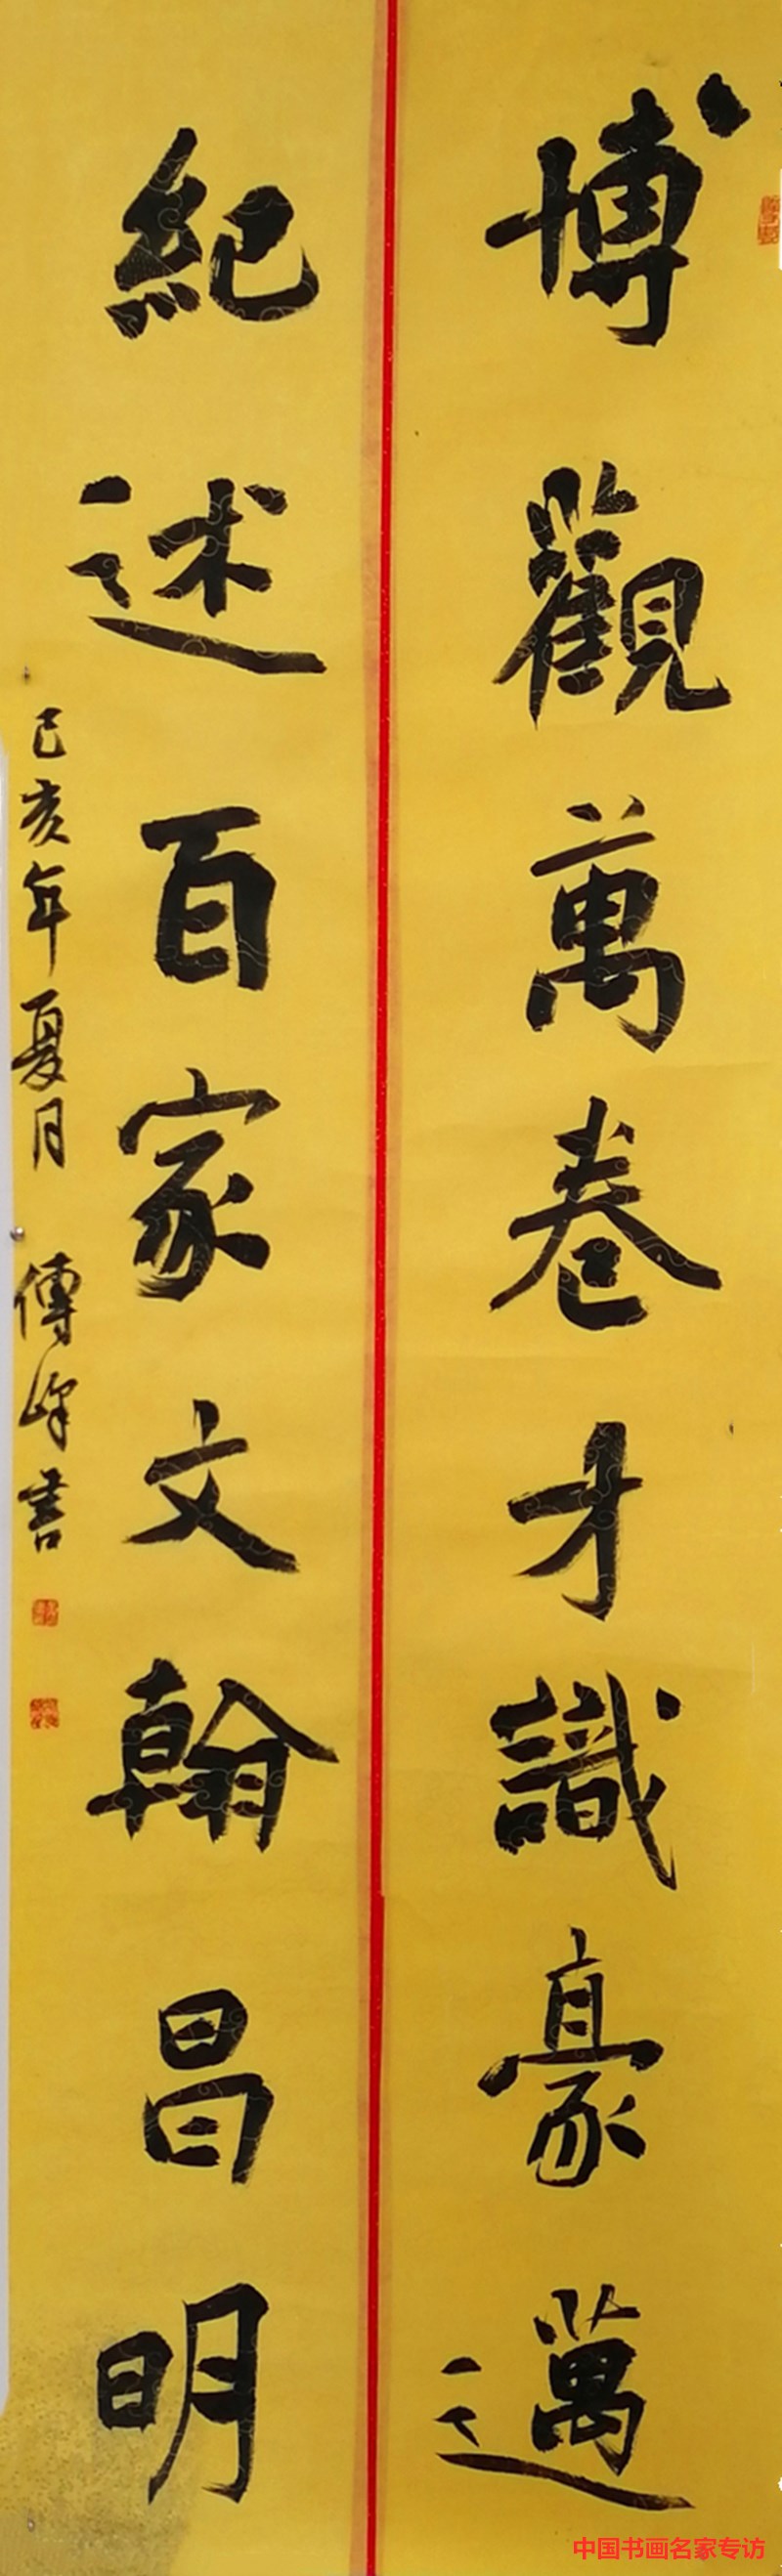 博觀萬卷才識豪邁
紀述百家文翰昌明
己亥年夏月 傅峰書
中国书画名家专访